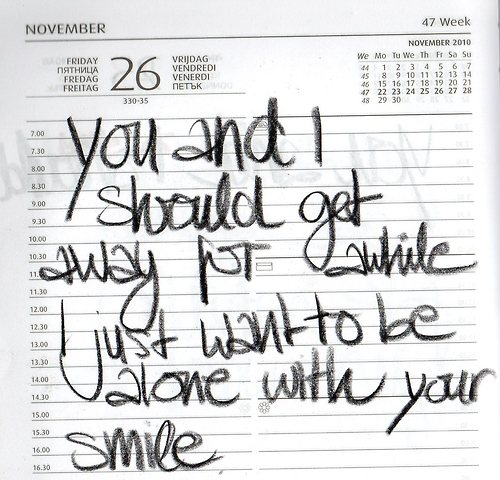 NOVEMBER 47 Week
FRIDAY VRIJDAG
ПЯТНИЦА VENDREDI
FREDAG VENERDI
FREITAG ПЕТЪК
26
330-35
NOVEMBER 2010
We Mo Tu We Th Fr Sa Su
44 1 2 3 4 5 6 7
45 8 9 10 11 12 13 14
46 15 16 17 18 19 20 21
47 22 23 24 25 26 27 28
48 29 30
7.00
7.30
8.00
8.30
9.00
9.30
10.00
10.30
11.00
11.30
12.00
12.30
13.00
13.30
14.00
14.30
15.00
15.30
16.00
16.30
you and I
should get
away for awhile
I just want to be
alone with your
smile